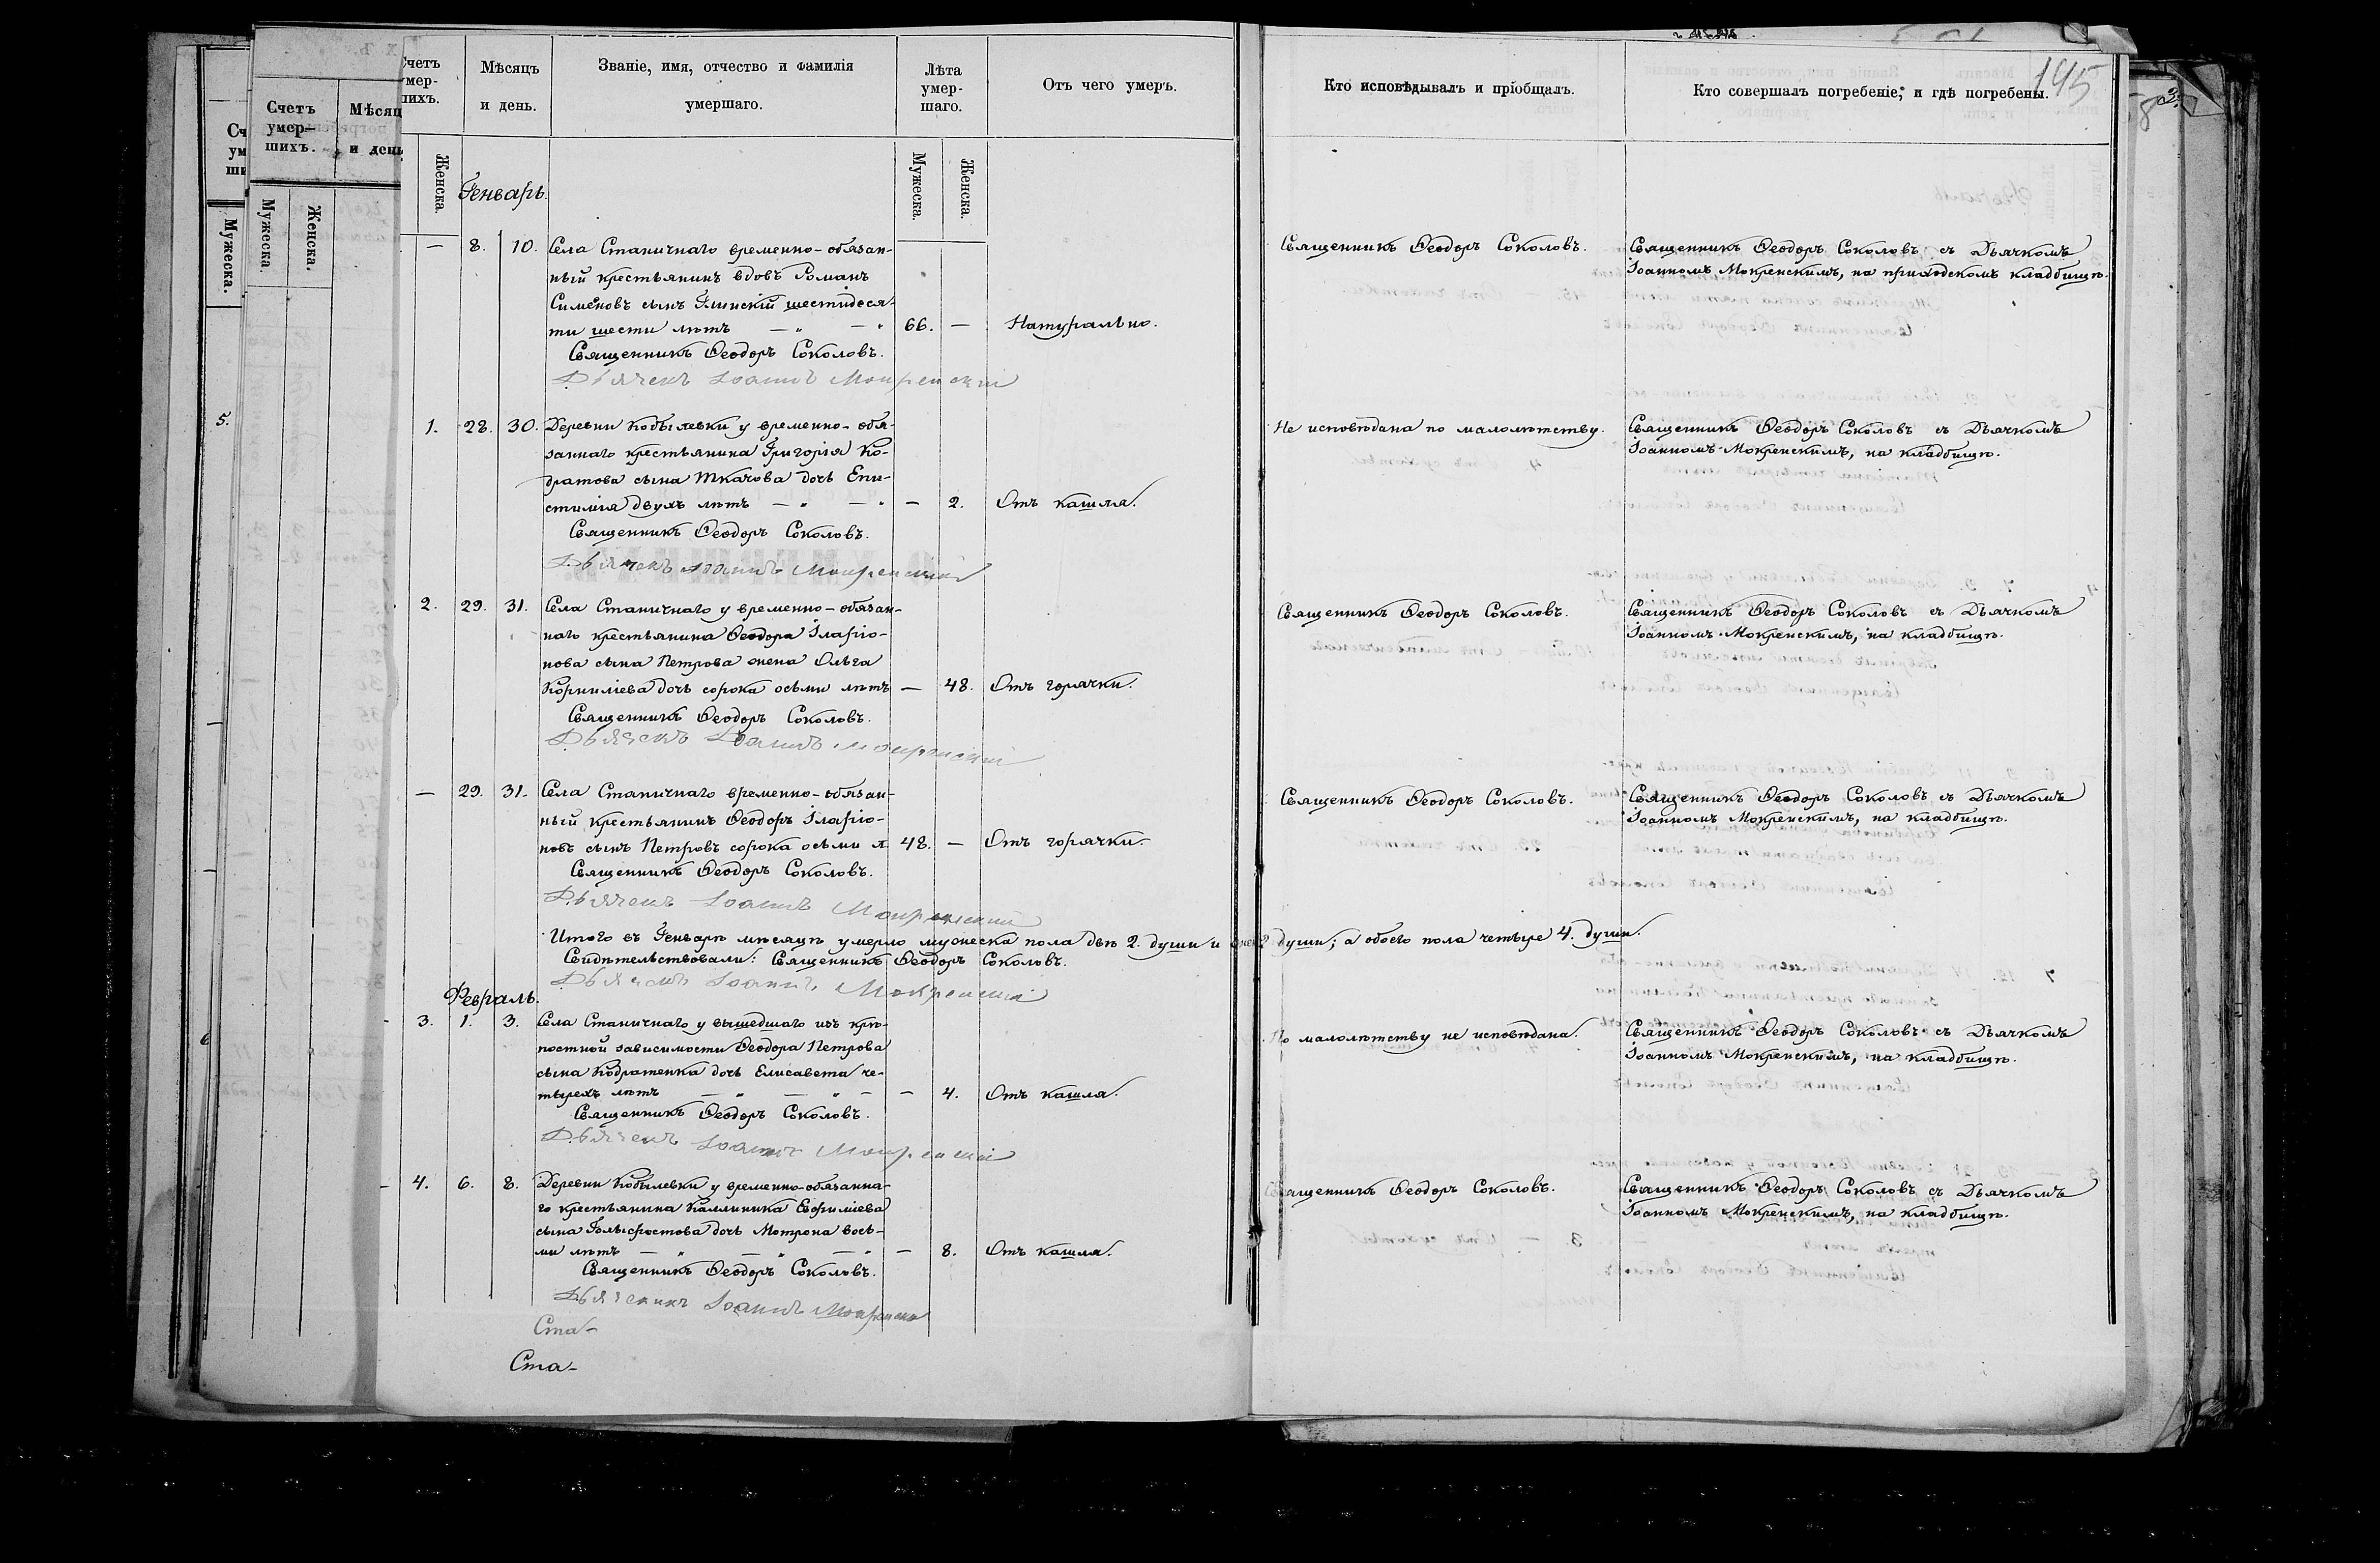 145
Счетъ умер- шихъ.
Мѣсяцъ и день.
Званіе, имя, отчество и фамилія умершаго.
Лѣта умер- шаго.
Отъ чего умеръ.
Кто исповѣдывалъ и пріобщалъ.
Кто совершалъ погребеніе, и гдѣ погребены.
Мужеска.
Женска.
Генварь.
— 8. 10. Села Станичнаго временно-обязан-
ный крестьянинъ вдовъ Романъ
Сименовъ сынъ Глинскій шестидеся-
ти шести лѣтъ 66. — Натурально.
Священникъ Ѳеодоръ Соколовъ.
Дьячекъ Іоаннъ Мокренскій
Священникъ Ѳеодоръ Соколовъ.
Священникъ Ѳеодоръ Соколовъ съ Дьячкомъ
Іоанномъ Мокренскимъ, на приходскомъ кладбищѣ.
1. 28. 30. Деревни Кобылевки у временно-обя-
заннаго крестьянина Григорія Ко-
дратова сына Ткачова дочь Епи-
стимія двухъ лѣтъ — 2. Отъ кашля.
Священникъ Ѳеодоръ Соколовъ.
Дьячекъ Іоаннъ Мокренскій
Не исповѣдана по малолѣтству.
Священникъ Ѳеодоръ Соколовъ съ Дьячкомъ
Іоанномъ Мокренскимъ, на кладбищѣ.
2. 29. 31. Села Станичнаго у временно-обязан-
наго крестьянина Ѳеодора Іларіо-
нова сына Петрова жена Ольга
Корниліева дочь сорока осьми лѣтъ — 48. Отъ горячки.
Священникъ Ѳеодоръ Соколовъ.
Дьячекъ Іоаннъ Мокренскій
Священникъ Ѳеодоръ Соколовъ.
Священникъ Ѳеодоръ Соколовъ съ Дьячкомъ
Іоанномъ Мокренскимъ, на кладбищѣ.
— 29. 31. Села Станичнаго временно-обязан-
ный крестьянинъ Ѳеодоръ Іларіо-
новъ сынъ Петровъ сорока осьми л. 48. — Отъ горячки.
Священникъ Ѳеодоръ Соколовъ.
Дьячекъ Іоаннъ Мокренскій
Священникъ Ѳеодоръ Соколовъ.
Священникъ Ѳеодоръ Соколовъ съ Дьячкомъ
Іоанномъ Мокренскимъ, на кладбищѣ.
Итого въ Генварѣ мѣсяцѣ умерло мужеска пола двѣ 2. души и 2 души; а обоего пола четыре 4. души.
Свидѣтельствовали: Священникъ Ѳеодоръ Соколовъ.
Дьячекъ Іоаннъ Мокренскій
Февраль.
3. 1. 3. Села Станичнаго у вышедшаго изъ крѣ-
постной зависимости Ѳеодора Петрова
сына Кодратенка дочь Елисавета че-
тырехъ лѣтъ — 4. Отъ кашля.
Священникъ Ѳеодоръ Соколовъ.
Дьячекъ Іоаннъ Мокренскій
По малолѣтству не исповѣдана.
Священникъ Ѳеодоръ Соколовъ съ Дьячкомъ
Іоанномъ Мокренскимъ, на кладбищѣ.
4. 6. 8. Деревни Кобылевки у временно-обязанна-
го крестьянина Каллиника Евфиміева
сына Гольсфостова дочь Мотрона вось-
ми лѣтъ — 8. Отъ кашля.
Священникъ Ѳеодоръ Соколовъ.
Іоаннъ
Священникъ Ѳеодоръ Соколовъ.
Священникъ Ѳеодоръ Соколовъ съ Дьячкомъ
Іоанномъ Мокренскимъ, на кладбищѣ.
Ста-
Ста-